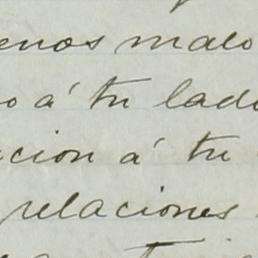 enos malo
o á tu lado
cion á tu
relaciones